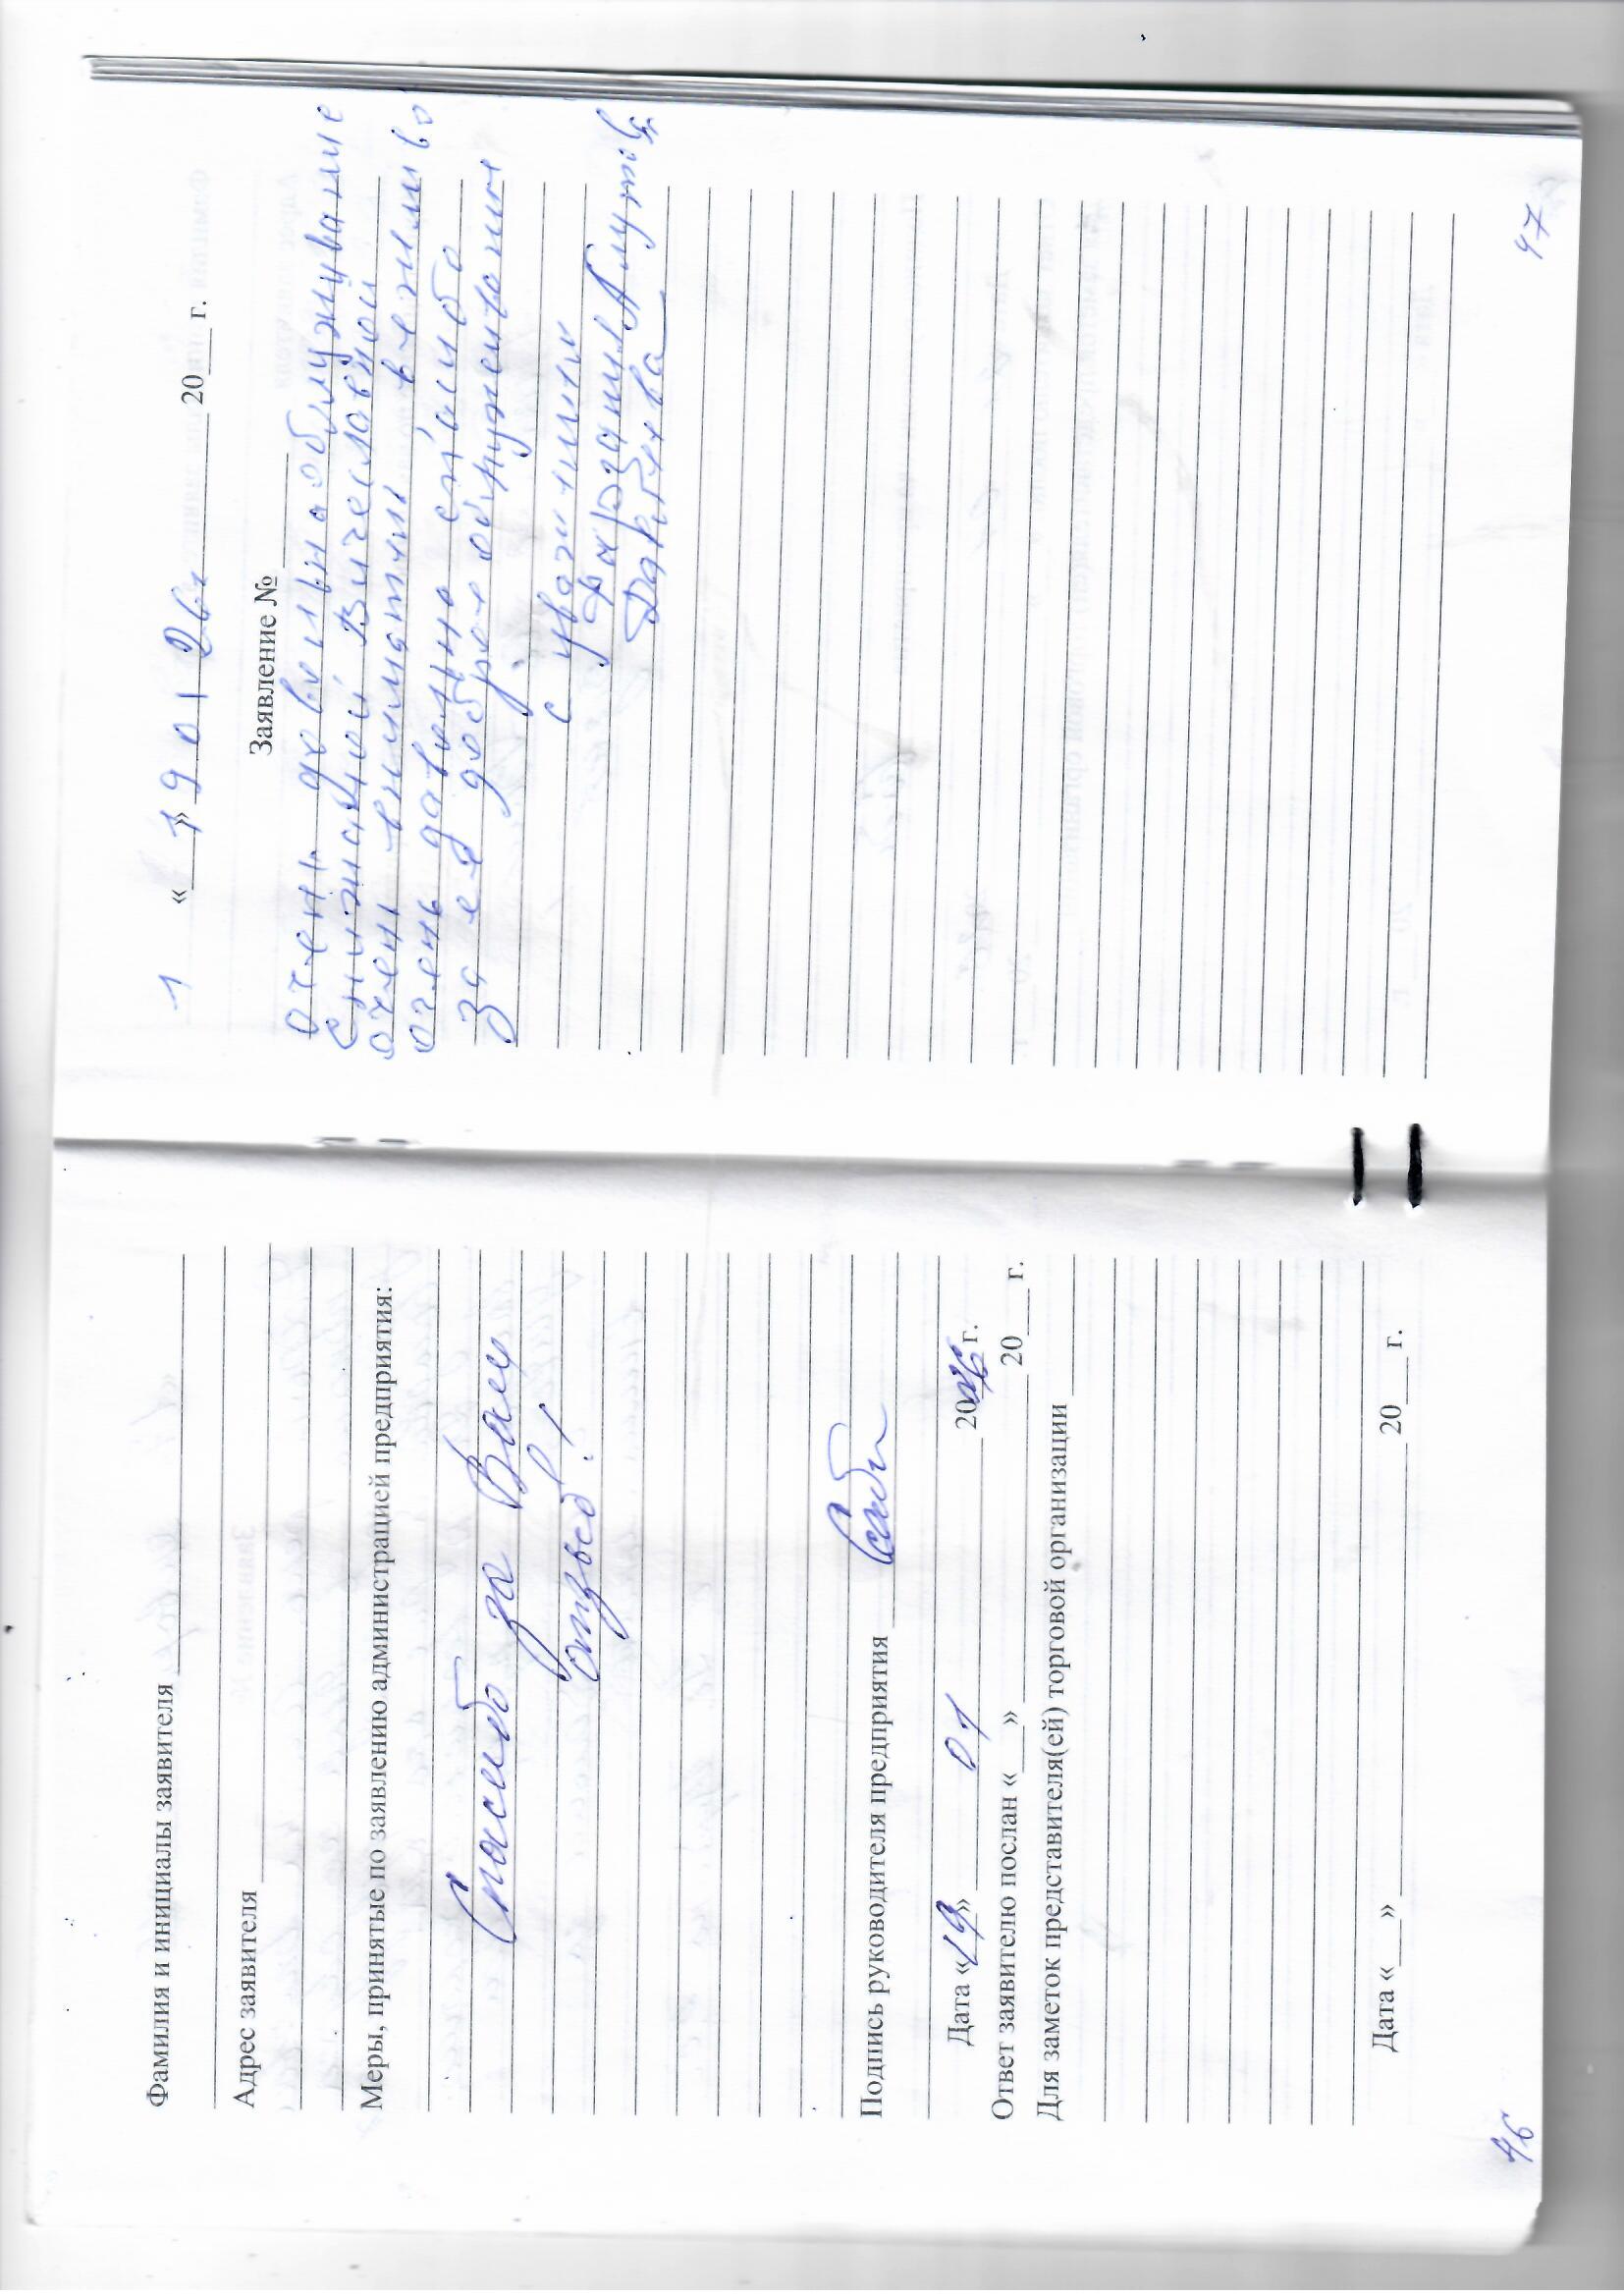 Фамилия и инициалы заявителя
Адрес заявителя
Меры, принятые по заявлению администрацией предприятия:
Спасибо за Ваш
отзыв!
Подпись руководителя предприятия
Дата «19» 01 2026 г.
Ответ заявителю послан «___» 20___ г.
Для заметок представителя(ей) торговой организации
Дата «___» 20___ г.
46
1 « » 19 01 26 20___ г.
Заявление №
очень довольна обслуживание
Снижаной Вичеславной
очень внимательн вежливо
очень давольно спасибо
за её доброе
С
47